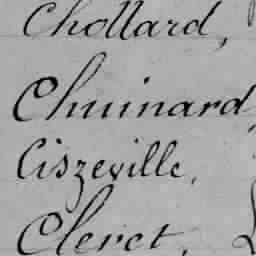 Chollard,
Chuinard,
Ciszeville,
Cleret,